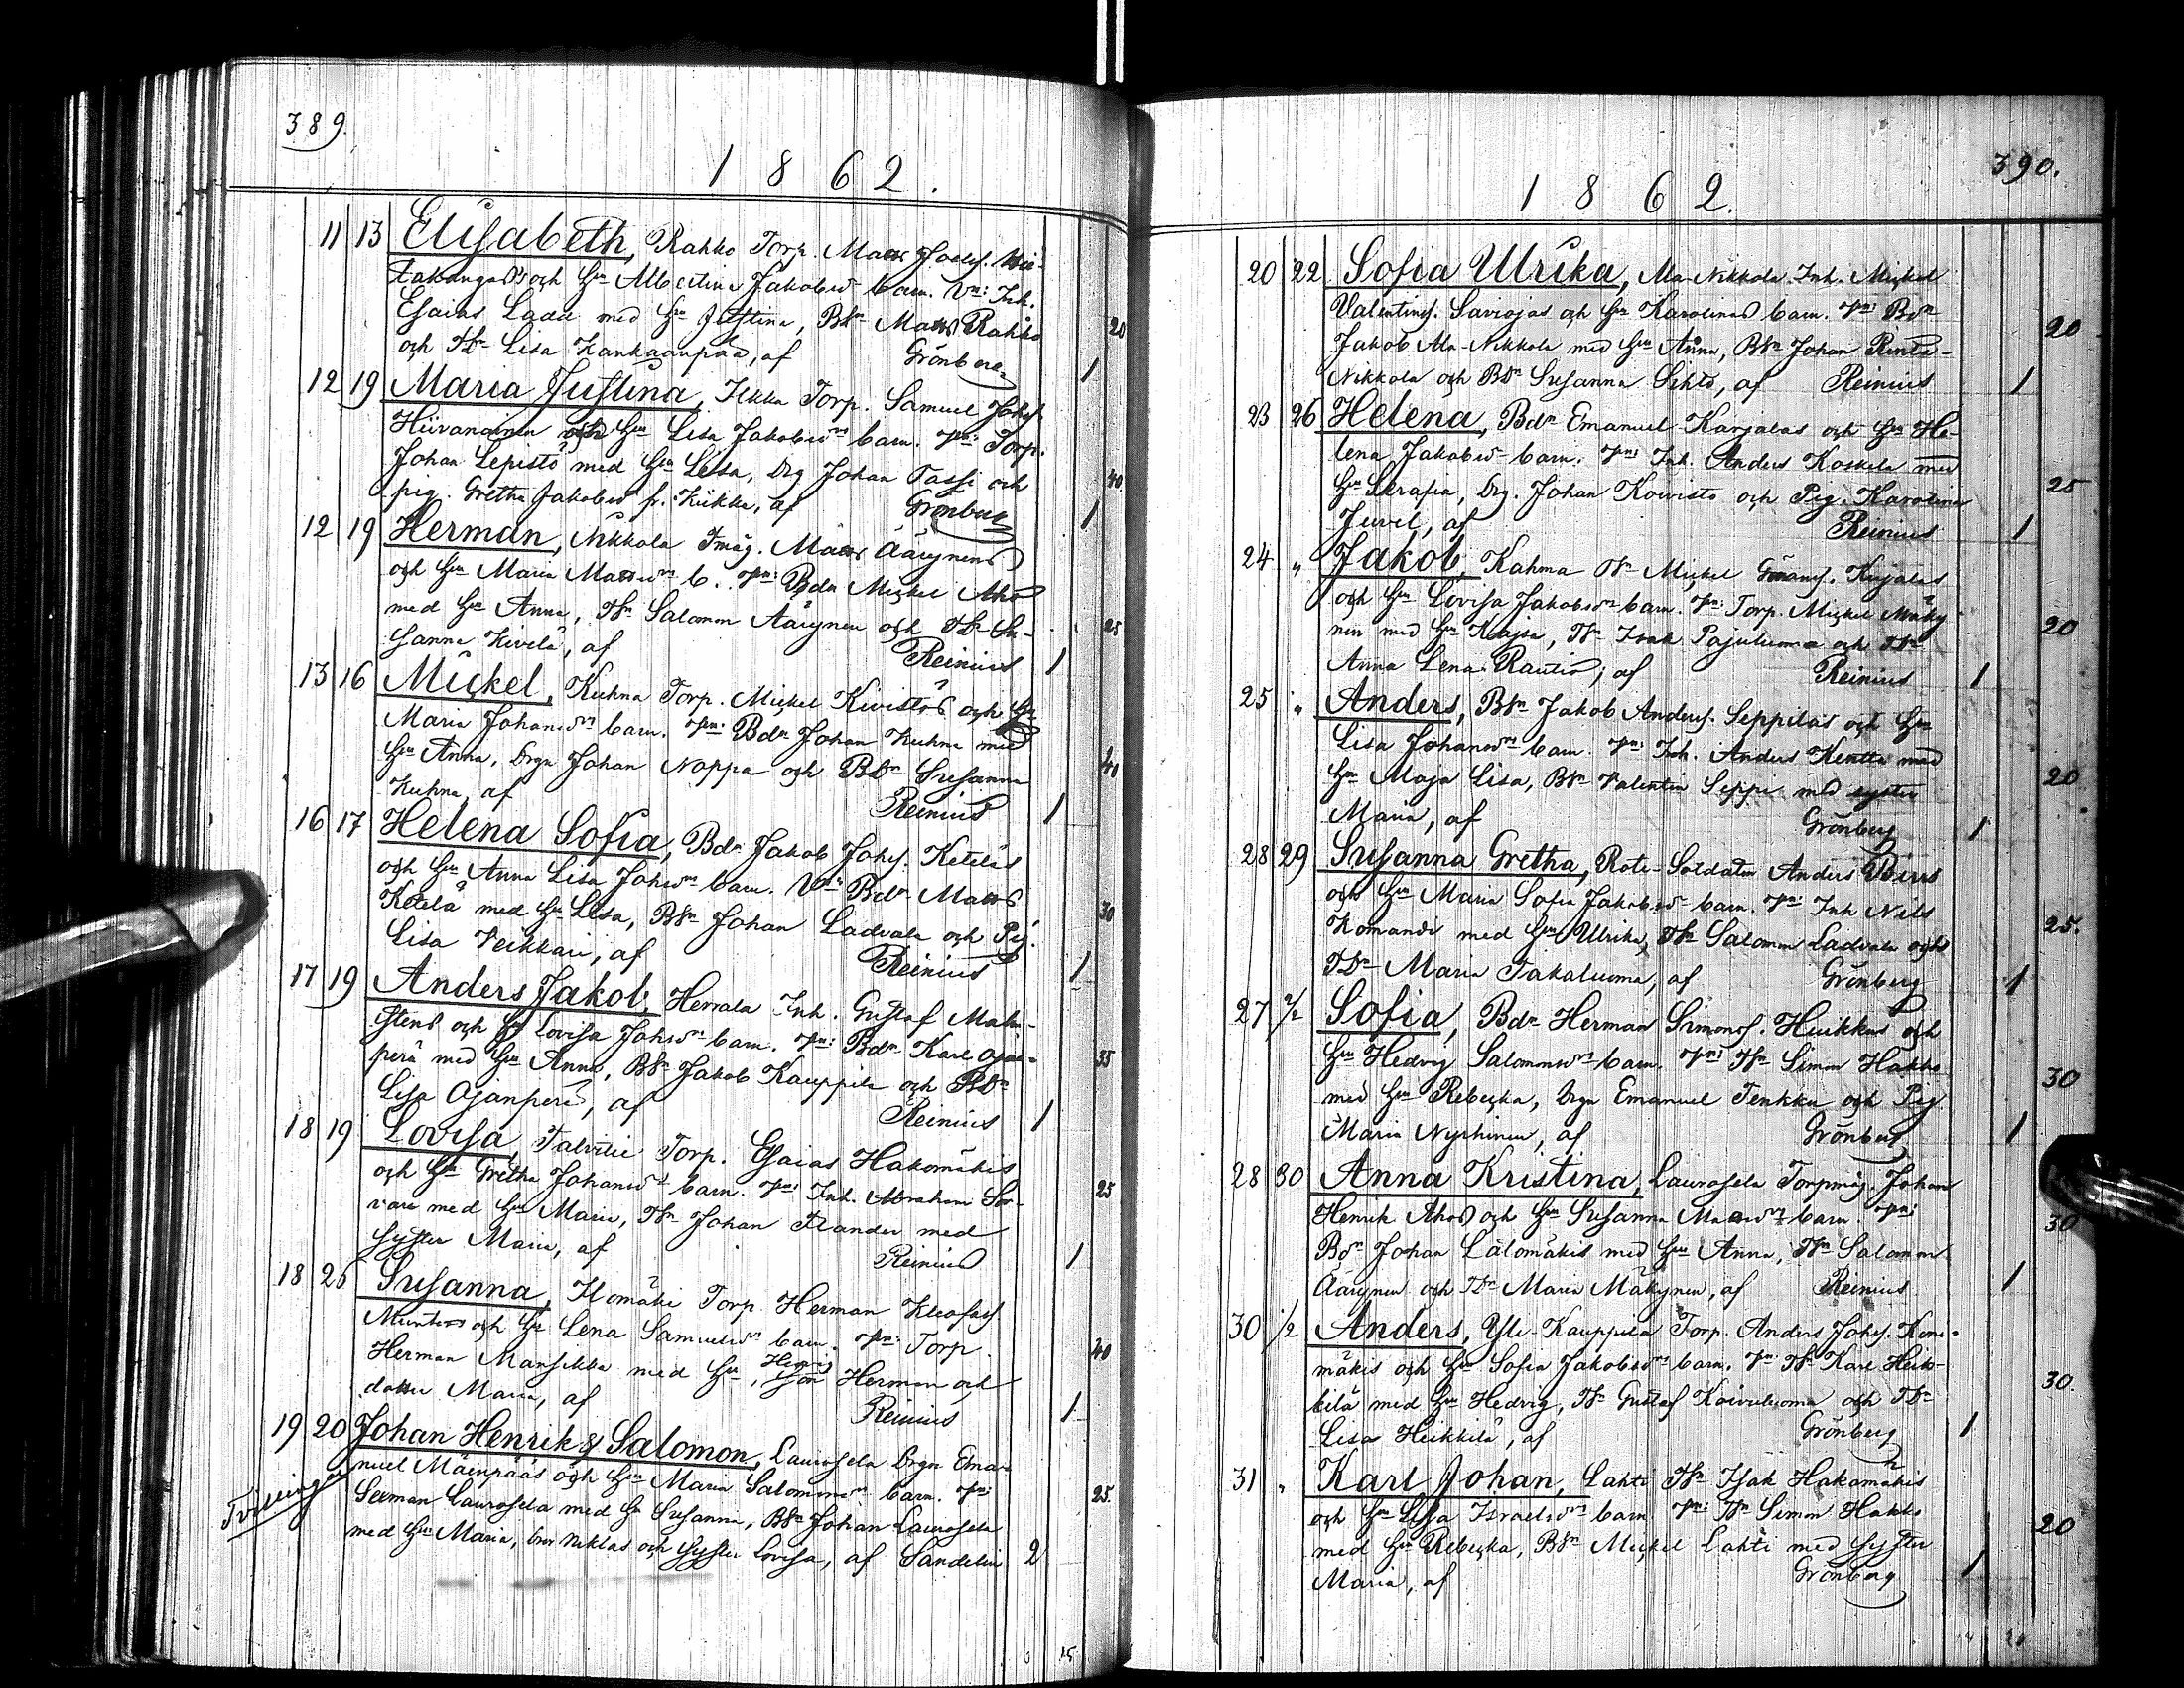 389.
1862.
11 13 Elisabeth, Rakko Torp. Matts Josefs.
och Hu Albertina Jakobsdr barn. Vn: Inh.
Esaias Ladu med Hu Justina, BSn Matts Rahko 20
och TDr Lisa Kankaanpää, af Grönberg 1
12 19 Maria Justina, Ilkka Torp. Samuel Johs.
och Hu Lisa Jakobsdr barn. Vn: Torp.
Johan Lepistö med Hu Lisa, Drg Johan Passi och 40
pig. Gretha Jakobsdr fr. Kiikka, af Grönberg 1
12 19 Herman, Nikkola Tmåg. Matts Äärynens
och Hu Maria Mattsdr b. Vn: Bdn Mickel Aho
med Hu Anna, TSn Salomon Äärynen och TDr Su- 25
sanna Kivelä, af Reinius 1
13 16 Mickel, Kuhna Torp. Mickel Kivistös och Hu
Maria Johansdr barn. Vn: Bdn Johan Kuhna med
Hu Anna, Drgn Johan Noppa och BDr Susanna 40
Kuhna, af Reinius 1
16 17 Helena Sofia, Bdn Jakob Johs. Keteläs
och Hu Anna Lisa Johsdr barn. Vn: Bdn Matts
Ketelä med Hu Lisa, BSn Johan Ladvala och Pig. 30
Lisa Veikkari, af Reinius 1
17 19 Anders Jakob, Herrala Inh. Gustaf Malm-
stens och Hu Lovisa Johsdr barn. Vn: Bdn Karl Ojan-
perä med Hu Anna, BSn Jakob Kauppila och BDr 35
Lisa Ojanperä, af Reinius 1
18 19 Lovisa, Talvitie Torp. Esaias Hakomäkis
och Hu Gretha Johansdr barn. Vn: Inh. Abraham Sor-
vari med Hu Maria, TSn Johan Flander med 25
syster Maria, af Reinius 1
18 26 Susanna, Ilomäki Torp. Herman Kleofas
och Hu Lena Samuelsdr barn. Vn: Torp.
Herman Mansikka med Hu, son Herman och 40
dotter Maria, af Reinius 1
19 20 Johan Henrik & Salomon, Laurosela Drgn Ema-
nuel Mäenpääs och Hu Maria Salomonsdr barn. Vn:
Tvillingar
Seeman Laurosela med Hu Susanna, BSn Johan Laurosela 25.
med Hu Maria, bror Niklas och syster Lovisa, af Sandelin 2
15
390.
1862.
20 22 Sofia Ulrika, Ala-Nikkola Inh. Mickel
Valentins. Saviojas och Hu Karolinas barn. Vn: Bdn
Jakob Ala-Nikkola med Hu Anna, BSn Johan Rinta- 20
Nikkola och BDr Susanna Sihto, af Reinius 1
23 26 Helena, Bdn Emanuel Karjalas och Hu He-
lena Jakobsdr barn. Vn: Inh. Anders Koskela med
Hu Serafia, Drg. Johan Koivisto och Pig. Karolina 25
Juvel, af Reinius 1
24 " Jakob, Kahma TSn Mickel Kujalas
och Hu Lovisa Jakobsdr barn. Vn: Torp. Mickel Mäky-
nen med Hu Kajsa, TSn Isak Pajuluoma och TDr 20
Anna Lena Rautio, af Reinius 1
25 " Anders, BSn Jakob Anders. Seppiläs och Hu
Lisa Johansdr barn. Vn: Inh. Anders Kentta med
Hu Maja Lisa, BSn Valentin Seppi med syster 20
Maria, af Grönberg 1
28 29 Susanna Gretha, Rote-Soldaten Anders Birss
och Hu Maria Sofia Jakobsdr barn. Vn: Inh Nils
Komandi med Hu Ulrika, TSn Salomon Ladvala och 25.
TDr Maria Takaluoma, af Grönberg 1
27 2/2 Sofia, Bdn Herman Simonss. Huikkus och
Hu Hedvig Salomonsdr barn. Vn: TSn Simon Hakko
med Hu Rebecka, Drgn Emanuel Tenkku och Pig. 30
Maria Nyrhinen, af Grönberg 1
28 30 Anna Kristina, Laurosela Torpmåg. Johan
Henrik Ahos och Hu Susanna Mattsdr barn. Vn: 30
Bdn Johan Lälomäkis med Hu Anna, TSn Salomon
Äärynen och TDr Maria Mäkynen, af Reinius 1
30 1/2 Anders, Yli-Kauppila Torp. Anders Johs. Koni-
mäkis och Hu Sofia Jakobsdr barn. Vn: TSn Karl Heik-
kilä med Hu Hedvig, TSn Gustaf Koivuluoma och TDr 30.
Lisa Heikkilä, af Grönberg 1
31 " Karl Johan, Lahti TSn Isak Hakamäkis
och Hu Lisa Israelsdr barn Vn: TSn Simon Hakko
med Hu Rebecka, BSn Mickel Lahti med syster 20
Maria, af Grönberg 1